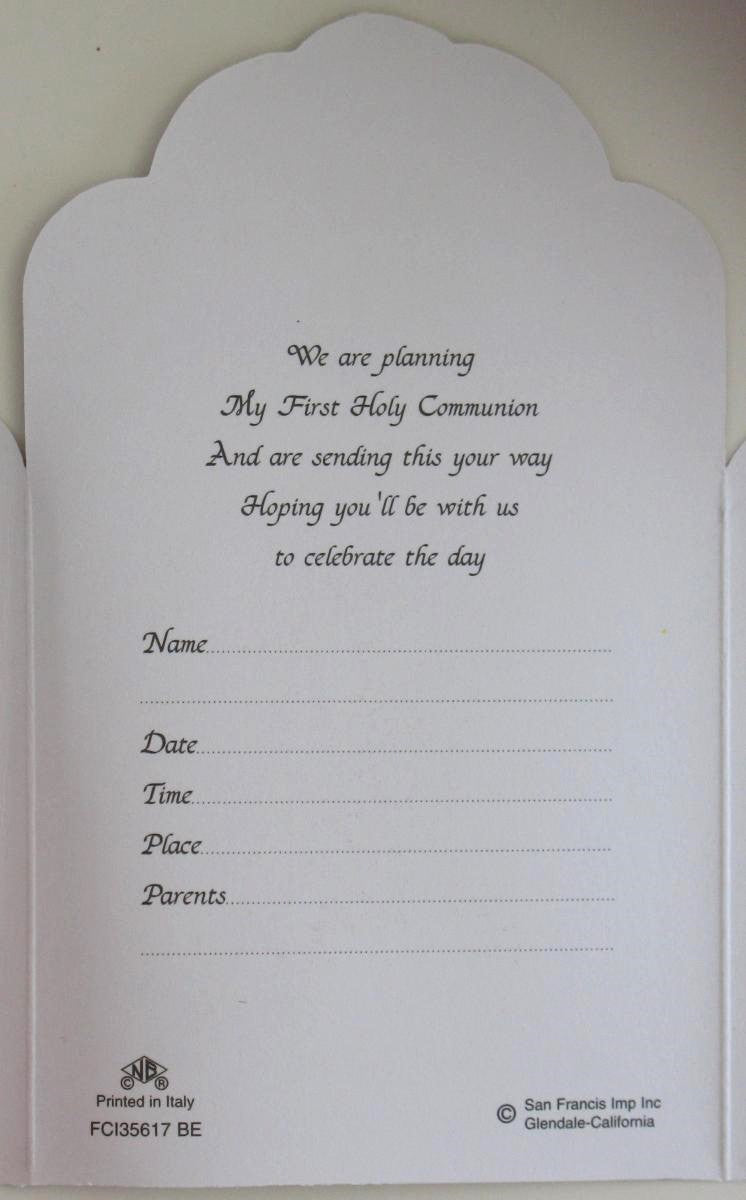 We are planning
My First Holy Communion
And are sending this your way
Hoping you'll be with us
to celebrate the day
Name
Date
Time
Place
Parents
© NB ®
Printed in Italy
FCI35617 BE
© San Francis Imp Inc
Glendale-California